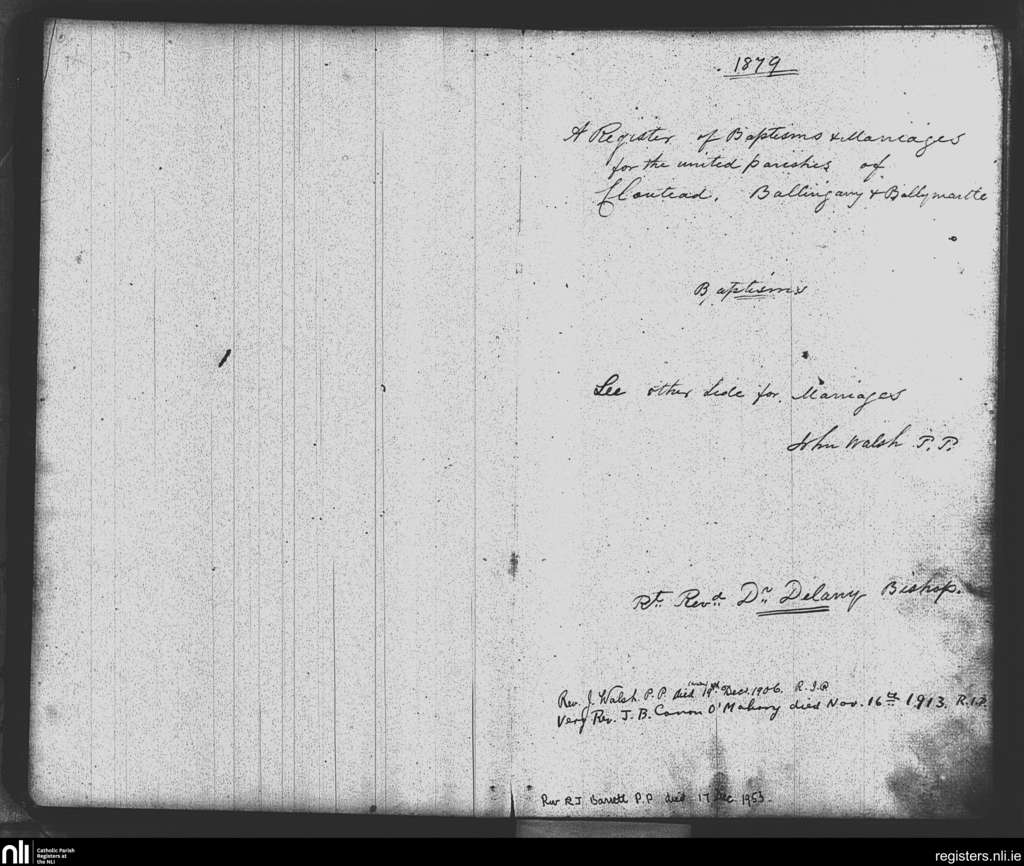 1879
A Register of Baptisms & Marriages
for the united parishes of
Clontead, Ballingarry & Ballymartle
Baptisms
See other side for Marriages
John Walsh P.P.
Rt. Revd. Dr. Delany Bishop.
Rev. J. Walsh P.P. died 19th Dec. 1906. R.I.P
Very Rev. J. B. Canon O'Mahony died Nov. 16th 1913. R.I.P.
Rev R J Barrett P.P. died 17 Dec 1953.
nli Catholic Parish
Registers at
the NLI
registers.nli.ie